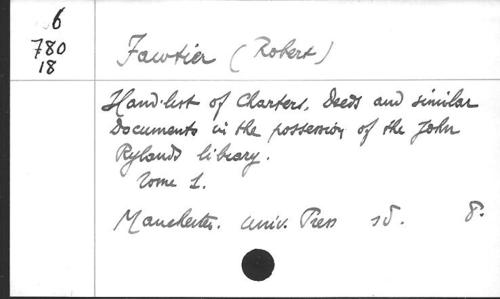 6
780
18
Fawtier (Robert)
Hand-list of Charters, Deeds and similar
Documents in the possession of the John
Rylands library.
Tome 1.
Manchester. Univ. Press sd. 8.